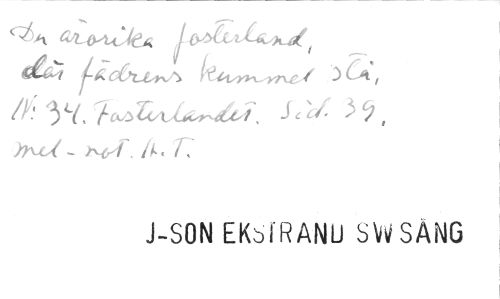 Du ärorika fosterland,
där fädrens kummel stå,
N: 34. Fosterlandet. Sid. 39.
mel-not. H.T.
J-SON EKSTRAND SW SÅNG